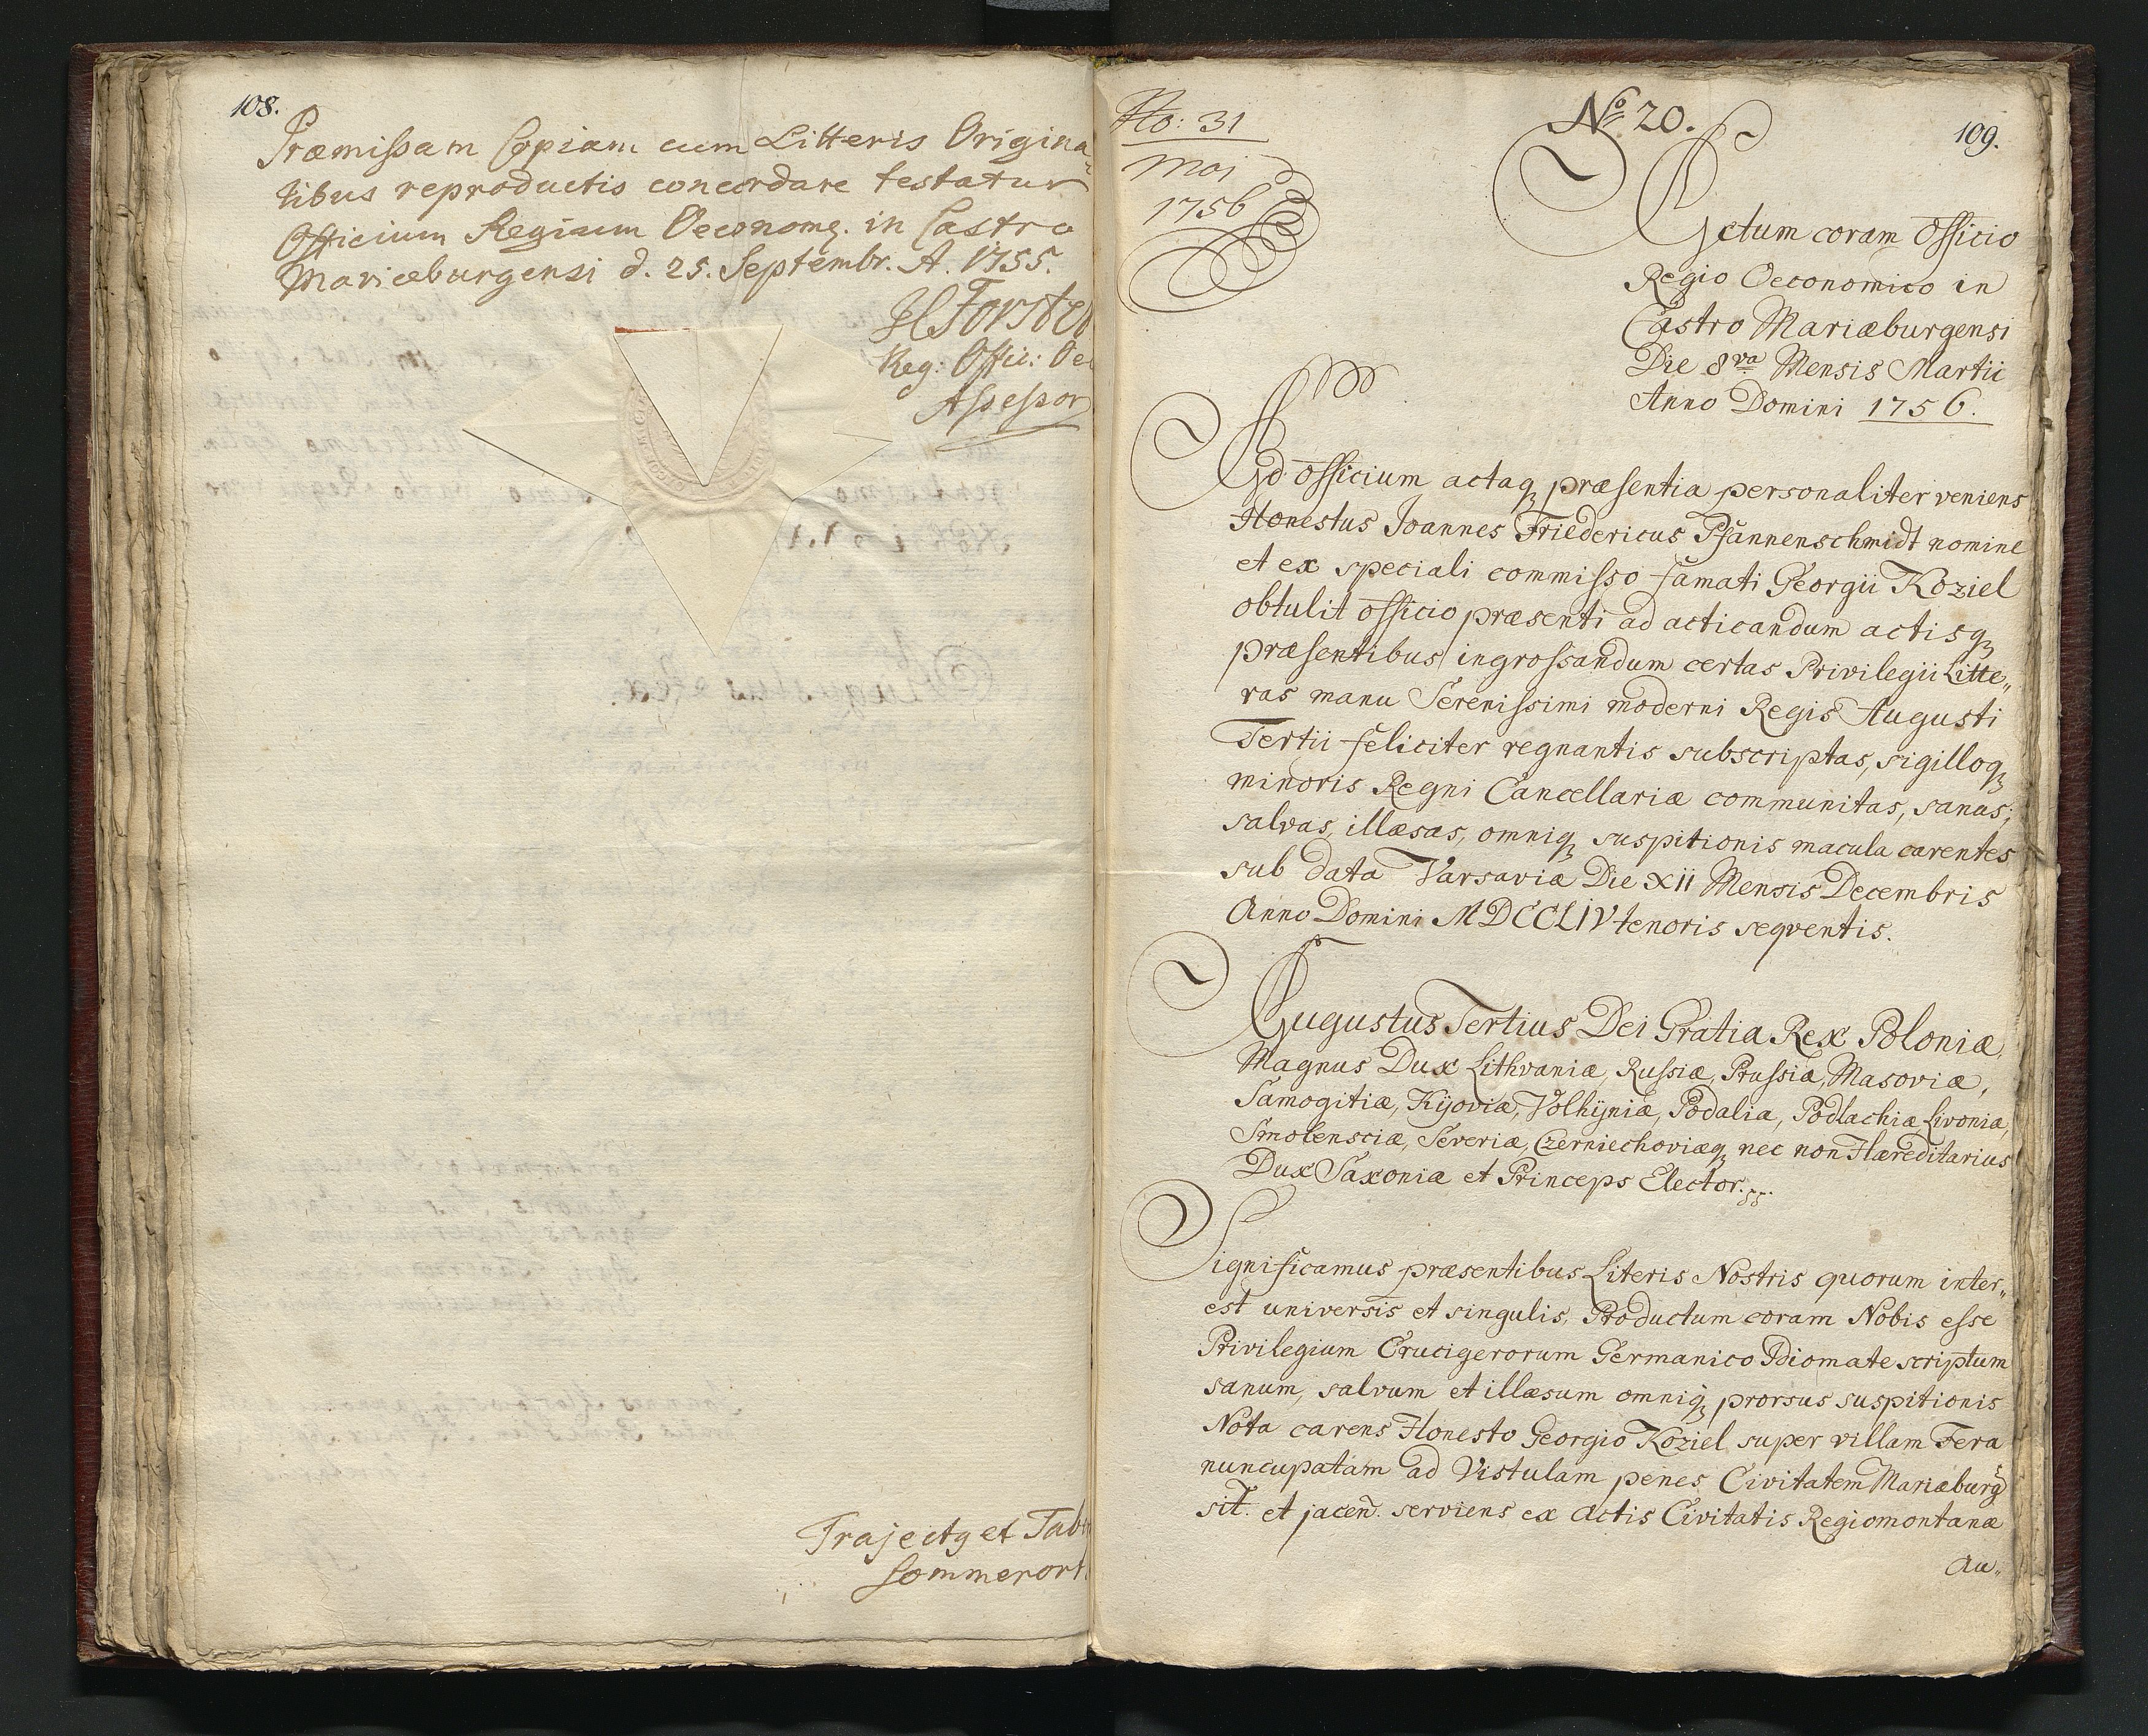 108.
Præmissam Copiam cum Litteris Origina
libus reproductis concordare testatur
Officium Regium Oeconomq. in Castro
Mariæburgensi d. 25. Septembr. A. 1755.
Forster
Reg: Offic: Oe
Assessor
Trajectq et Tab
Sommerort
31
Maj
1756
No. 20.
109.
Actum coram Officio
Regio Oeconomico in
Castro Mariæburgensi
Die 8va Mensis Martii
Anno Domini 1756.
Ad Officium actaq præsentia personaliter veniens
Honestus Joannes Friedericus Pfannenschmidt nomine
et ex speciali commisso famati Georgii Koziel
obtulit officio præsenti ad acticandum actisq
præsentibus ingrossandum certas Privilegii Litte„
ras manu Serenissimi moderni Regis Augusti
Tertii feliciter regnantis subscriptas, sigilloq
minoris Regni Cancellariæ communitas, sanas,
salvas, illæsas, omniq suspitionis macula carentes
sub data Varsaviæ Die XII Mensis Decembris
Anno Domini MDCCLIV tenoris seqventis.
Augustus Tertius Dei Gratia Rex Poloniæ,
Magnus Dux Lithvaniæ, Russiæ, Prussiæ, Masoviæ,
Samogitiæ, Kijoviæ, Volhijniæ, Podaliæ, Podlachiæ Livoniæ,
Smolensciæ, Severiæ, Czerniechoviæq nec non Hæreditarius
Dux Saxoniæ et Princeps Elector.
Significamus præsentibus Literis Nostris quorum inter„
est universis et singulis, Productum coram Nobis esse
Privilegium Crucigerorum Germanico Idiomate scriptum
sanum, salvum et illæsum omniq prorsus suspitionis
Nota carens Honesto Georgio Koziel super villam Fera
nuncupatam ad Vistulam penes Civitatem Mariæburg
sit. et jacen. serviens ex Actis Civitatis Regiomontanæ
Au„